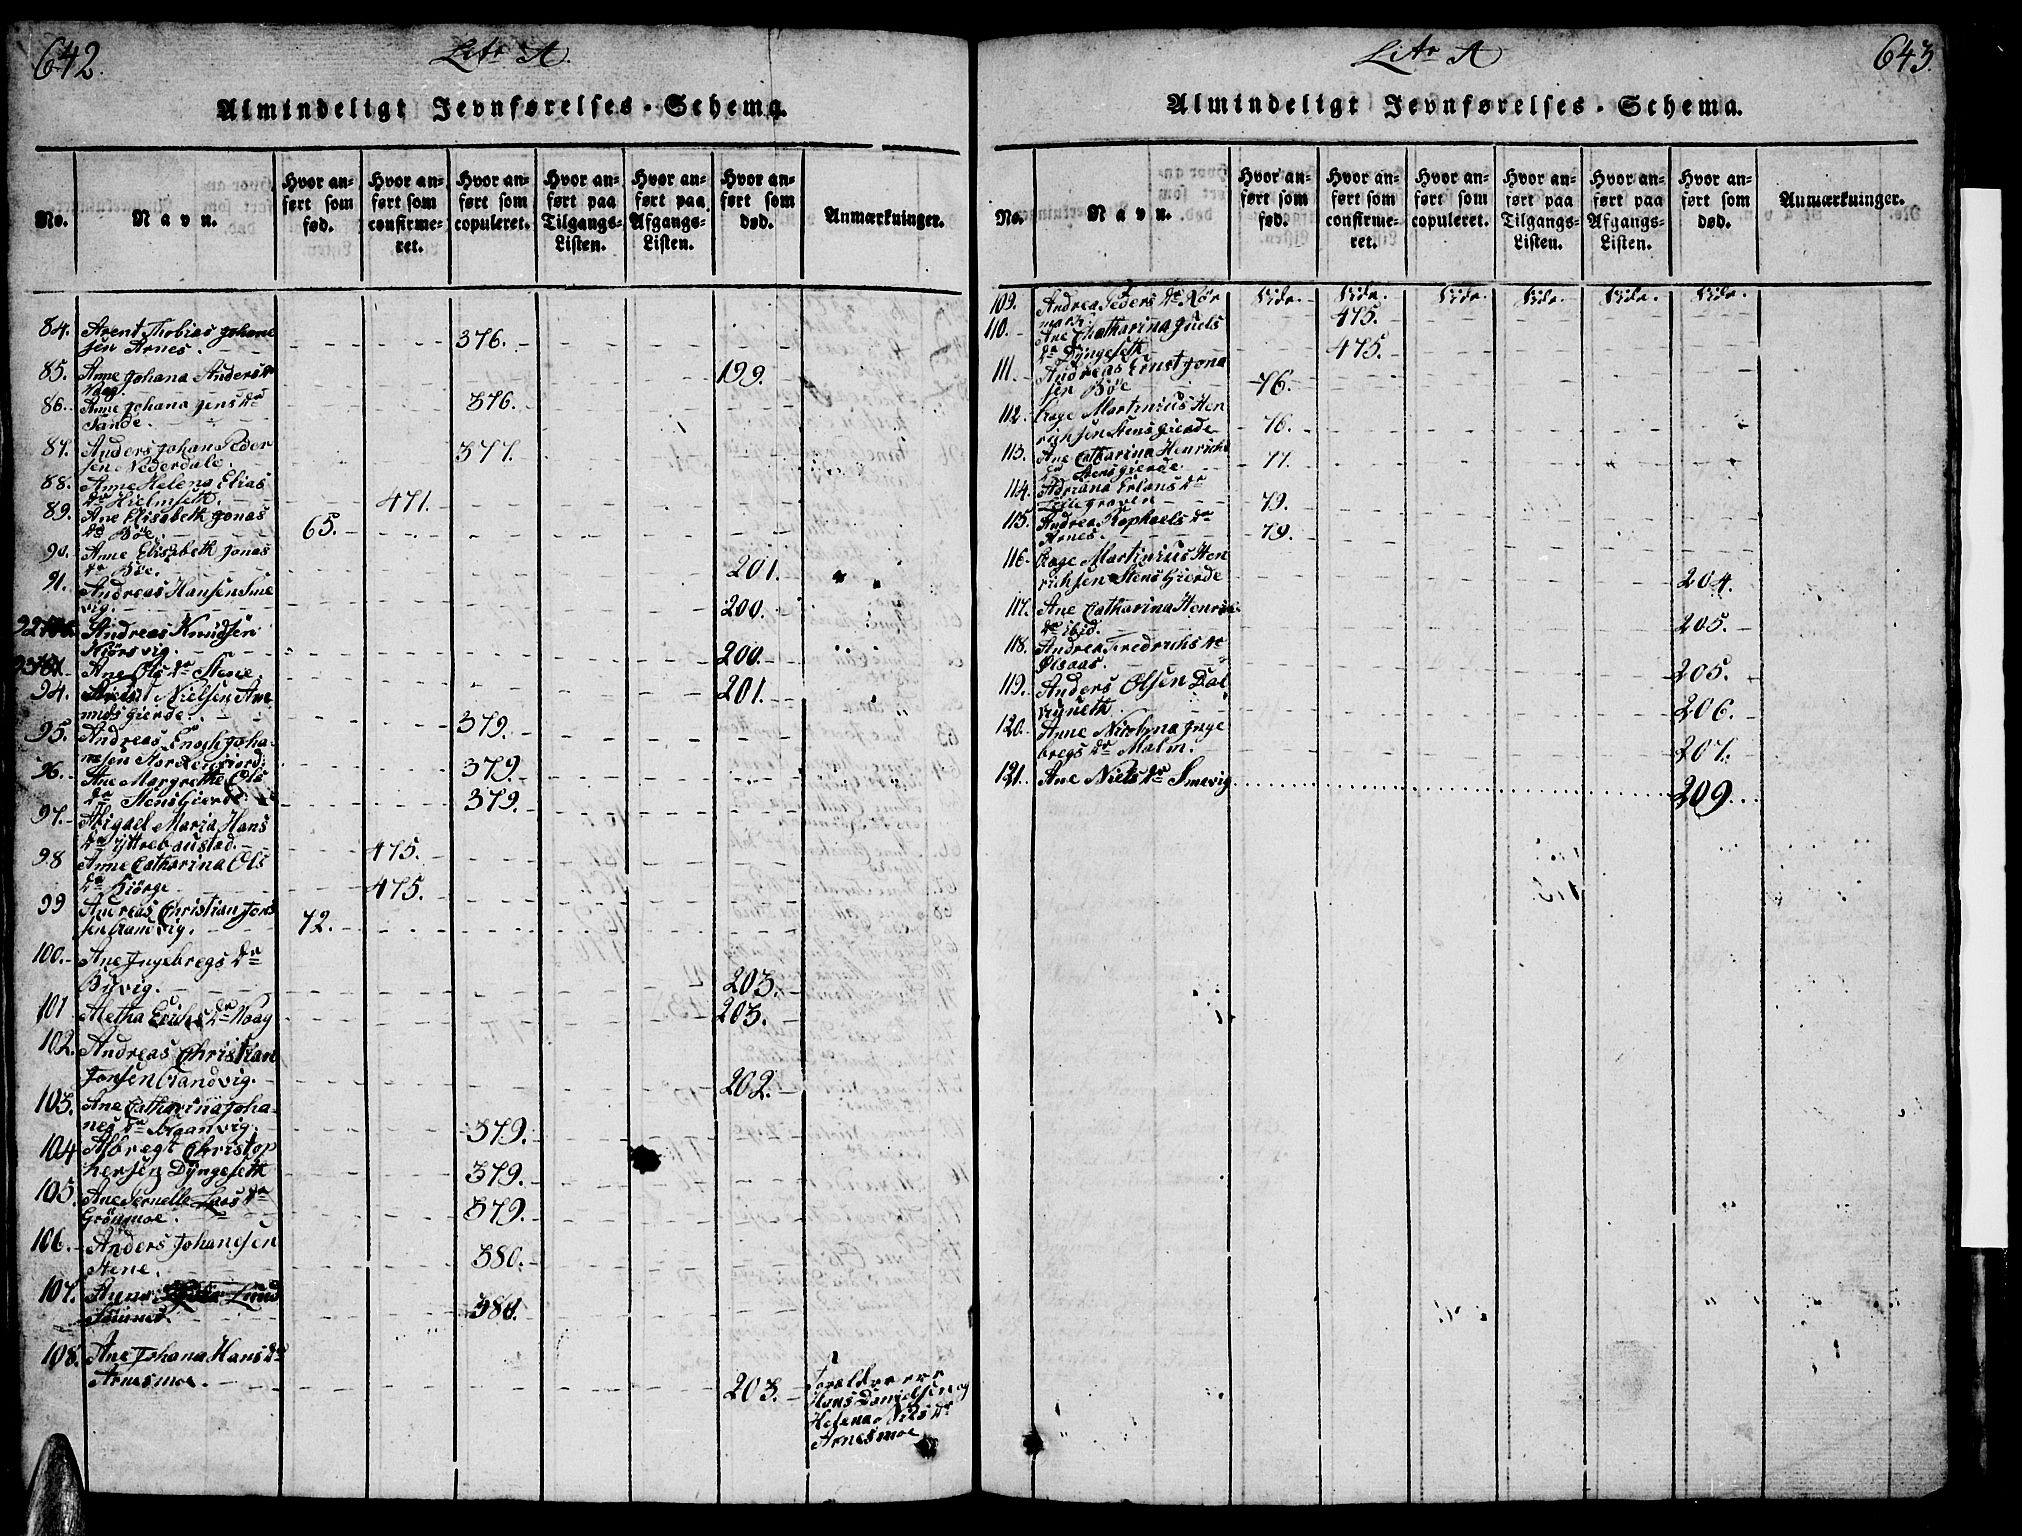 642.
Litr A.
Almindeligt Jevnførelses-Schema.
No.
Navn.
Hvor an-
ført som
fød.
Hvor an-
ført som
confirme-
ret.
Hvor an-
ført som
copuleret.
Hvor an-
ført paa
Tilgangs-
Listen.
Hvor an-
ført paa
Afgangs-
Listen.
Hvor an-
ført som
død.
Anmærkninger.
84. Arent Thobias Johane
sen Arnes. 376.
85. Anne Johana Anders dr
Waag. 199.
86. Anne Johana Jens dr
Sande. 376.
87. Anders Johan Peder
sen Nederdale. 377.
88. Anne Helena Elias
dr Hielmseth. 471.
89. Ane Elisabeth Jonas
dr Böe. 65.
90. Anne Elisabeth Jonas
dr Böe. 201.
91. Andreas Hansen Sme
vig. 200.
92. Andreas Knudsen
Kiörsvig. 200.
93. Ane Ols dr Stene 201.
94. Nielsen Are
mids gierde. 379.
95. Andreas Enoch Joha-
nsen 379.
96. Ane Margrethe Ols
dr Stens Gierde 379.
97. Abigael Maria Hans
dr yttrebaustad. 475.
98 Anne Catharina Ols
dr Biörge 475.
99 Andreas Christian Jons
sen 72.
100. Ane Ingebregs dr
Byvig. 203.
101 Aletha Erichs dr Waag 203.
102. Andreas Christian
Jonsen 202.
103. Ane Catharina Joha-
nes dr 379.
104 Albregt Christop
hersen Dyngeseth 379.
105. Ane Pernelle Lars dr
Grönmoe. 379.
106. Anders Johanesen
Stene. 380.
107. Lund
108. Ane Johana Hans dr
Arnesmoe. 203. Foreldre ere
Hans Danielsen og
Helena Nils dr
Arnesmoe
643.
Litr A
Almindeligt Jevnførelses-Schema.
No.
Navn.
Hvor an-
ført som
fød.
Hvor an-
ført som
confirme-
ret.
Hvor an-
ført som
copuleret.
Hvor an-
ført paa
Tilgangs-
Listen.
Hvor an-
ført paa
Afgangs-
Listen.
Hvor an-
ført som
død.
Anmærkninger.
Side. Side. Side. Side. Side. Side.
109. Andrea Peders dr Kör
mark 475.
110. Ane Chatharina Juels
dr Dyngeseth 475.
111. Andreas Ernst Jona
sen Böe 76.
112. Aage Martinius Hen
richsen Stens gierde 76.
113. Ane Catharina Henrichs
dr Stensgierde 77.
114. Adriana Erlans dr
Tellegraven 79.
115. Andrea Raphaels dr
Arnes. 79.
116. Aage Martinius Hen
richsen Stens Gierde 204.
117. Ane Catharina Henrichs
dr ibid. 205.
118. Andrea Fredrichs dr
Olsaas. 205.
119. Anders Olsen Dal
206.
120. Anne Nicolina Inge
bregs dr Malm. 207.
121. Ane Niels dr Smevig 209.